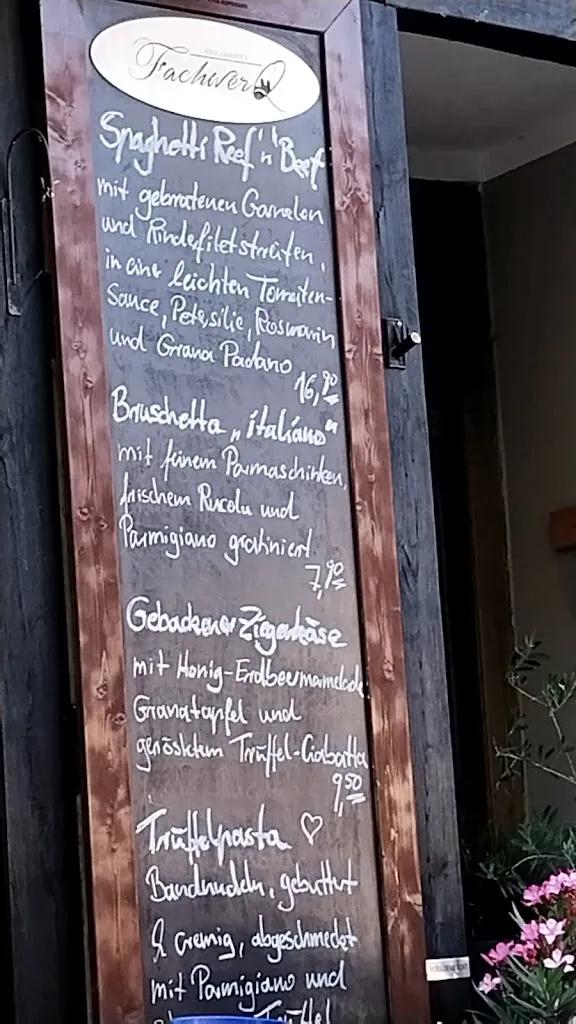 FachwerQ
Spaghetti Reef 'n' Beef
mit gebratenen Garnelen
und Rindefiletstreifen,
in einer leichten Tomaten-
Sauce, Petersilie, Rosmarin
und Grana Padano
16,90
Bruschetta „italiano"
mit feinem Parmaschinken,
frischem Rucola und
Parmigiano gratiniert
7,90
Gebackener Ziegenkäse
mit Honig-Erdbeermarmelade
Granatapfel und
geröstetem Trüffel-Ciabatta
9,50
Trüffelpasta ♡
Bandnudeln, gebuttert
& cremig, abgeschmeckt
mit Parmigiano und
Trüffel